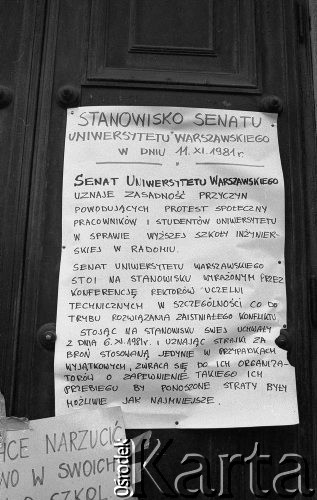 STANOWISKO SENATU
UNIWERSYTETU WARSZAWSKIEGO
W DNIU 11.XI.1981r.
SENAT UNIWERSYTETU WARSZAWSKIEGO
UZNAJE ZASADNOŚĆ PRZYCZYN
POWODUJĄCYCH PROTEST SPOŁECZNY
PRACOWNIKÓW I STUDENTÓW UNIWERSYTETU
W SPRAWIE WYŻSZEJ SZKOŁY INŻYNIER-
SKIEJ W RADOMIU.
SENAT UNIWERSYTETU WARSZAWSKIEGO
STOI NA STANOWISKU WYRAŻONYM PRZEZ
KONFERENCJĘ REKTORÓW UCZELNI
TECHNICZNYCH W SZCZEGÓLNOŚCI CO DO
TRYBU ROZWIĄZANIA ZAISTNIAŁEGO KONFLIKTU
STOJĄC NA STANOWISKU SWEJ UCHWAŁY
Z DNIA 6.XI.1981r. I UZNAJĄC STRAJKI ZA
BROŃ STOSOWANĄ JEDYNIE W PRZYPADKACH
WYJĄTKOWYCH, ZWRACA SIĘ DO ICH ORGANIZA-
TORÓW O ZAPEWNIENIE TAKIEGO ICH
PRZEBIEGU BY PONOSZONE STRATY BYŁY
MOŻLIWIE JAK NAJMNIEJSZE.
CE NARZUCIĆ
WO W SWOICH
SZKOL
Ośrodek
Karta